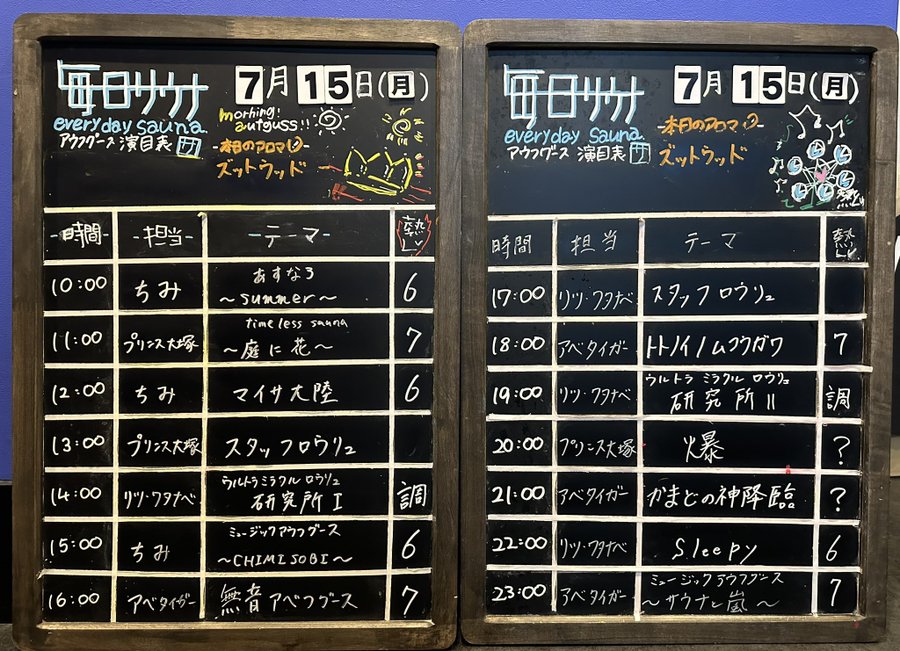 毎日サウナ 7月15日(月)
everyday sauna.
morning!
autguss!!
アウフグース 演目表
本日のアロマ
ズットウッド
時間 担当 テーマ 熱Lv
10:00 ちみ あすなろ ～summer～ 6
11:00 プリンス大塚 timeless sauna ～庭に花～ 7
12:00 ちみ マイサ大陸 6
13:00 プリンス大塚 スタッフロウリュ
14:00 リツ・ワタナベ ウルトラミラクルロウリュ 研究所 I 調
15:00 ちみ ミュージックアウフグース ～CHIMISOBI～ 6
16:00 アベタイガー 無音アベフグース 7
毎日サウナ 7月15日(月)
everyday sauna.
アウフグース 演目表
本日のアロマ
ズットウッド
時間 担当 テーマ 熱Lv
17:00 リツ・ワタナベ スタッフロウリュ
18:00 アベタイガー トトノイノムコウガワ 7
19:00 リツ・ワタナベ ウルトラミラクルロウリュ 研究所 II 調
20:00 プリンス大塚 爆 ?
21:00 アベタイガー かまどの神降臨 ?
22:00 リツ・ワタナベ Sleepy 6
23:00 アベタイガー ミュージックアウフグース ～サウナと嵐～ 7